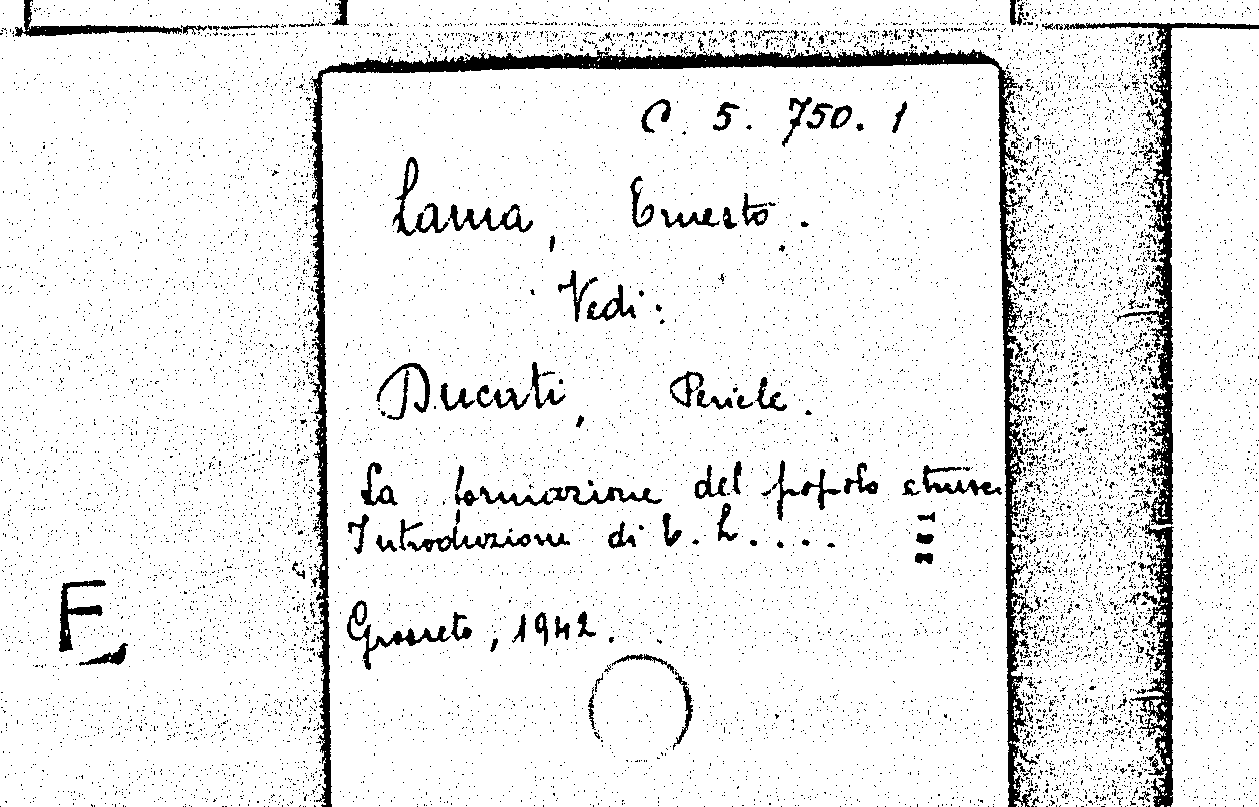 C. 5. 750. 1
Lama, Ernesto.
Vedi:
Ducati, Pericle.
La formazione del popolo etrusco
Introduzione di E. L. ....
Grosseto, 1942.
F